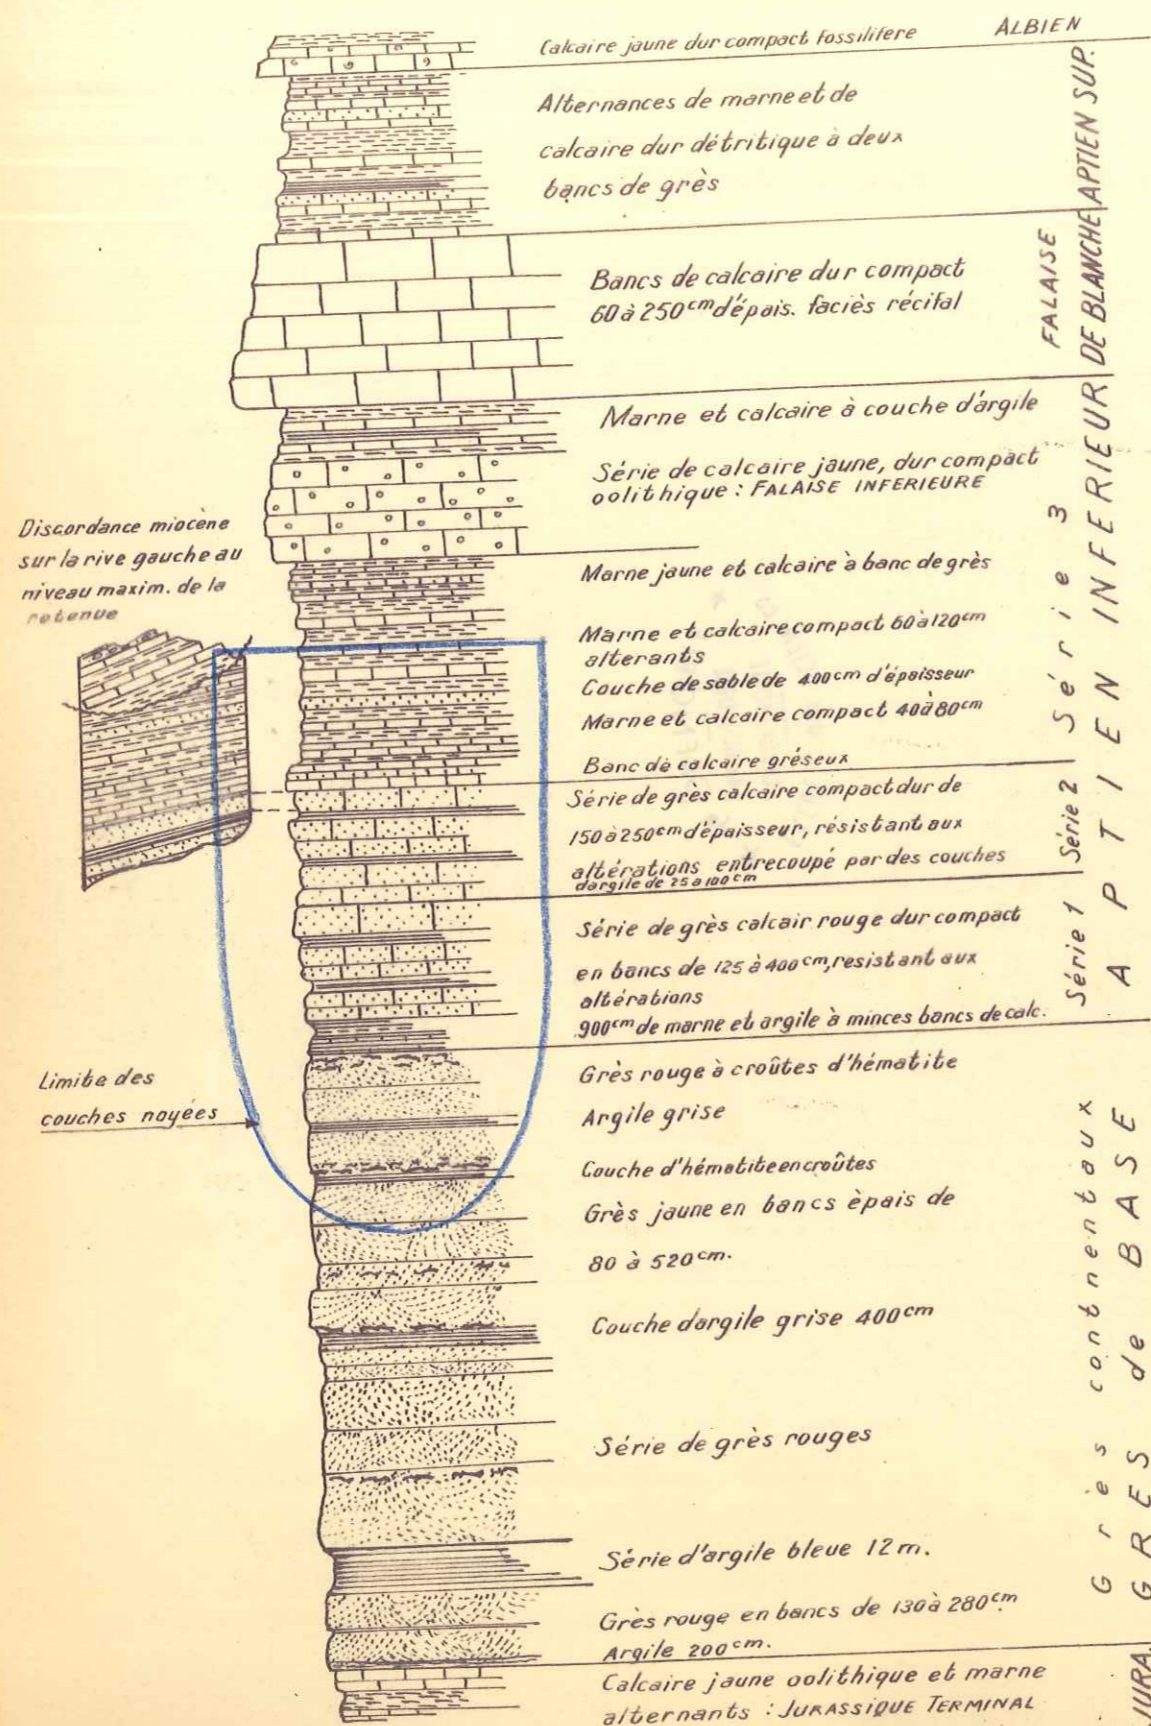 Calcaire jaune dur compact fossilifere
ALBIEN
Alternances de marne et de
calcaire dur détritique à deux
bancs de grès
APTIEN SUP.
Bancs de calcaire dur compact
60 à 250cm d'épais. faciès récifal
FALAISE
DE BLANCHE
Marne et calcaire à couche d'argile
Série de calcaire jaune, dur compact
oolithique : FALAISE INFERIEURE
Discordance miocène
sur la rive gauche au
niveau maxim. de la
retenue
Marne jaune et calcaire à banc de grès
Marne et calcaire compact 60 à 120cm
alterants
Couche de sable de 400cm d'épaisseur
Marne et calcaire compact 40 à 80cm
Banc de calcaire gréseux
Série 3
APTIEN INFERIEUR
Série de grès calcaire compact dur de
150 à 250cm d'épaisseur, résistant aux
altérations entrecoupé par des couches
dargile de 25 a 100cm
Série 2
Série de grès calcair rouge dur compact
en bancs de 125 à 400cm, resistant aux
altérations
900cm de marne et argile à minces bancs de calc.
Série 1
Limite des
couches noyées
Grès rouge à croûtes d'hématite
Argile grise
Couche d'hématite en croûtes
Grès jaune en bancs èpais de
80 à 520cm.
Couche dargile grise 400cm
Série de grès rouges
Série d'argile bleue 12 m.
Grès rouge en bancs de 130 à 280cm
Argile 200cm.
Grès contnentaux
GRES de BASE
Calcaire jaune oolithique et marne
alternants : JURASSIQUE TERMINAL
JURA.